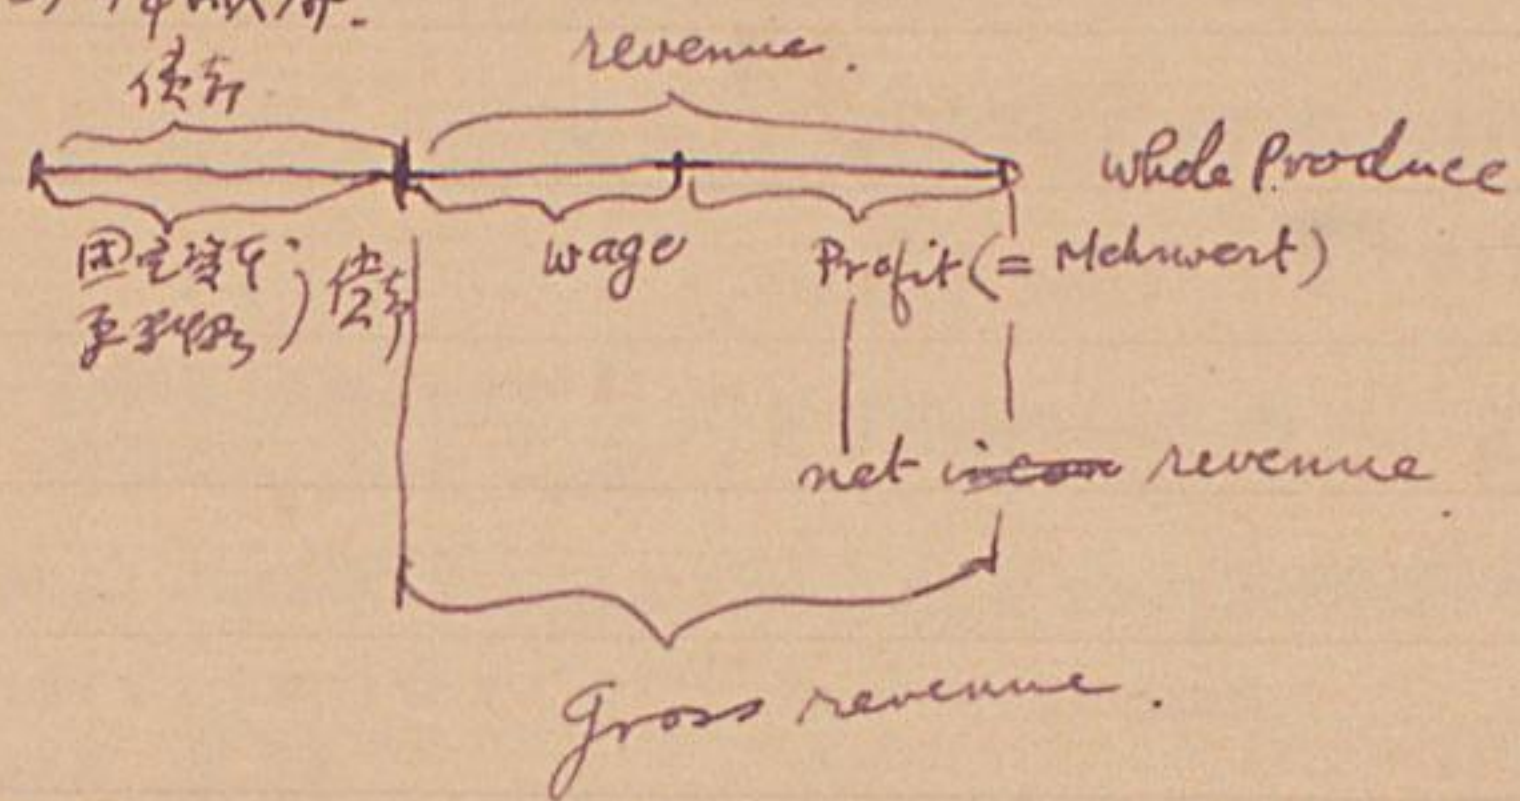 revenue.
償却
whole Produce
固定資本
償却
wage
Profit (= Mehrwert)
net incom revenue
Gross revenue.